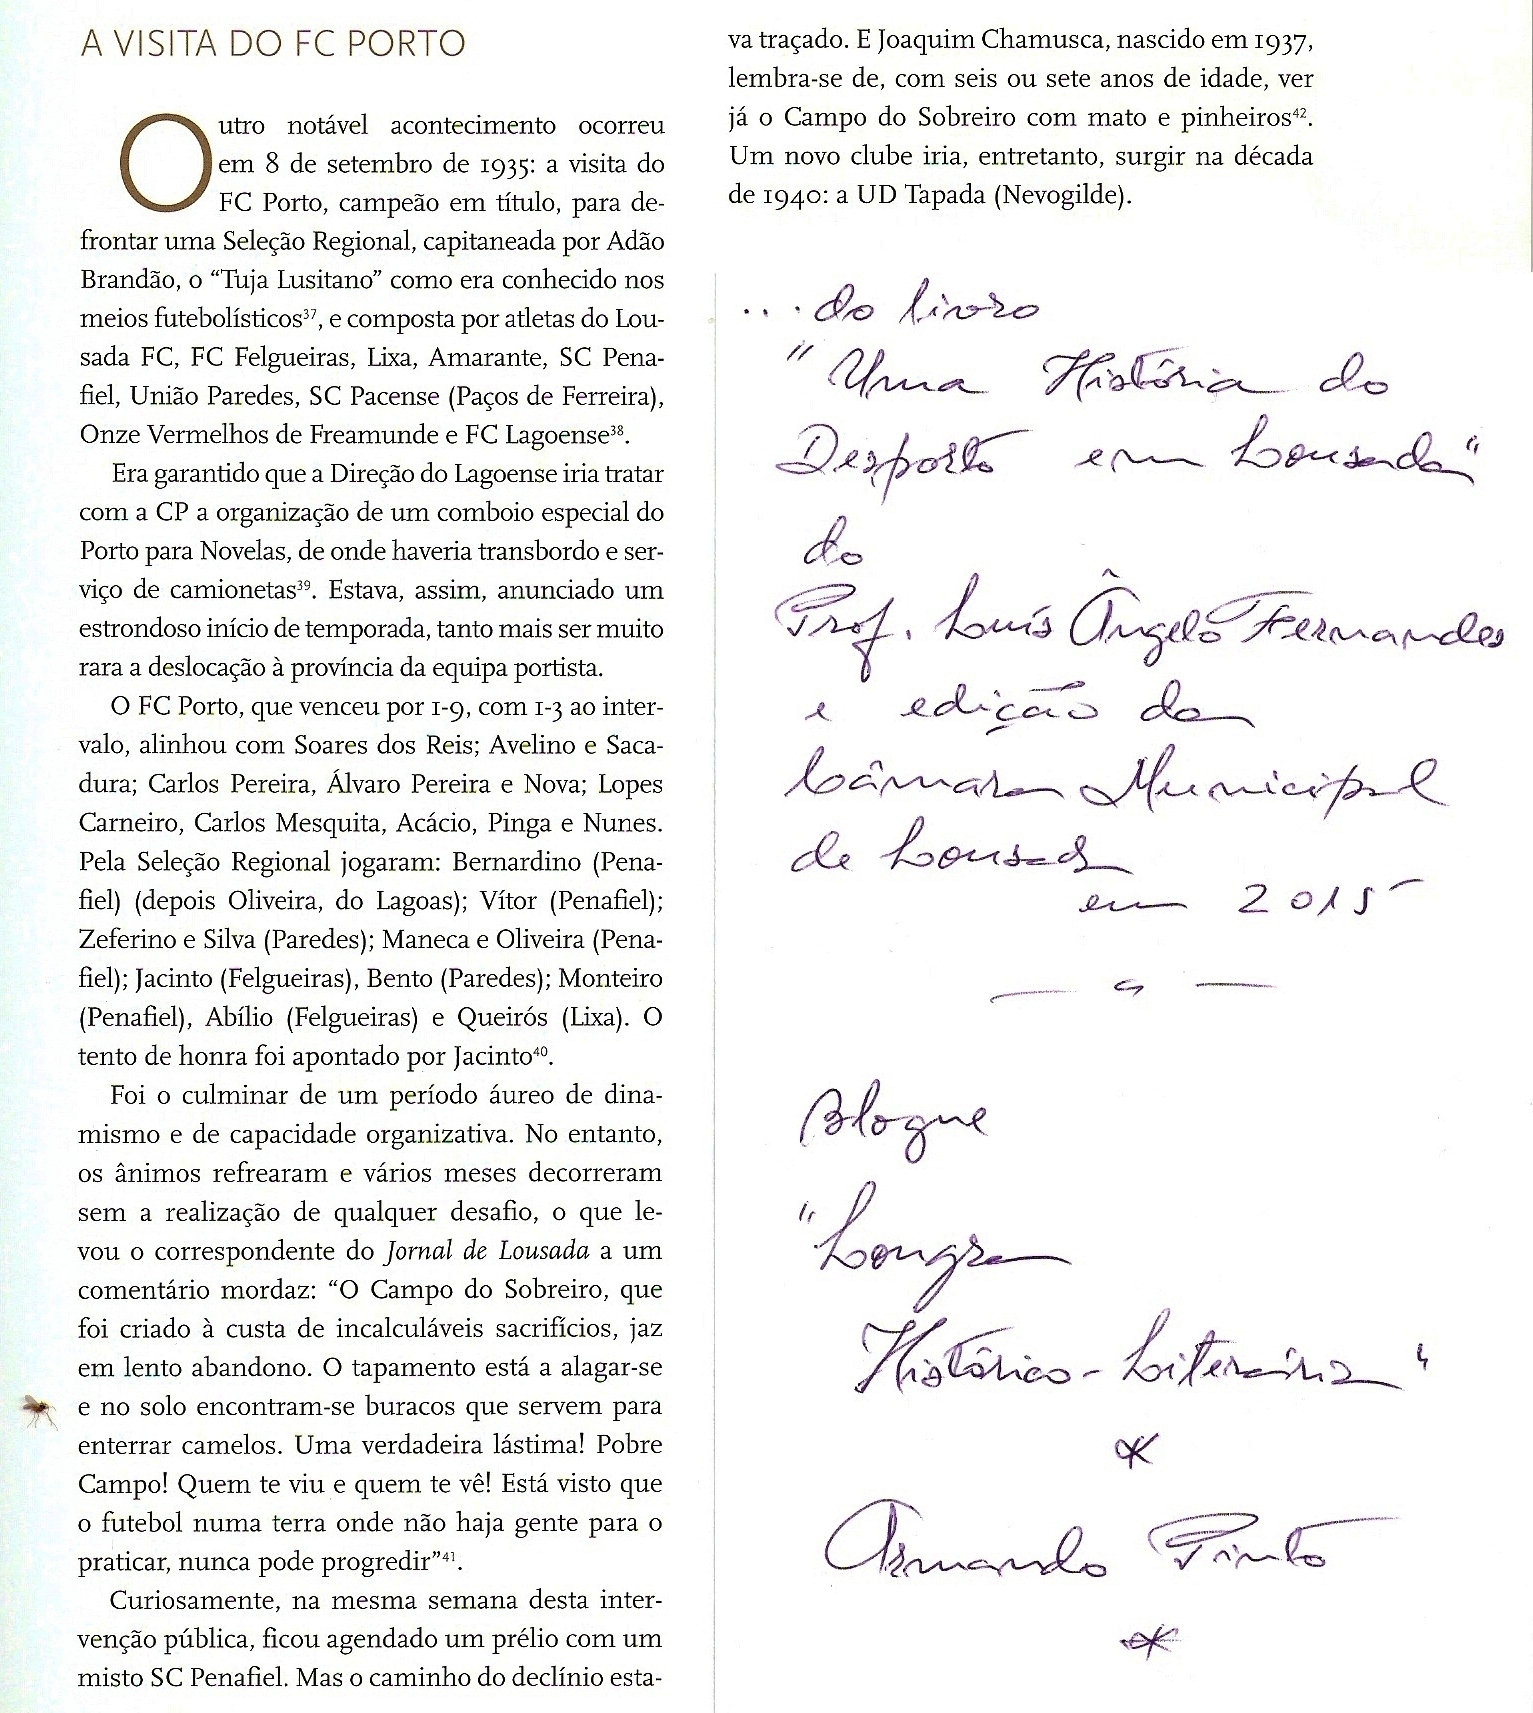 A VISITA DO FC PORTO
Outro notável acontecimento ocorreu
em 8 de setembro de 1935: a visita do
FC Porto, campeão em título, para de-
frontar uma Seleção Regional, capitaneada por Adão
Brandão, o “Tuja Lusitano” como era conhecido nos
meios futebolísticos³⁷, e composta por atletas do Lou-
sada FC, FC Felgueiras, Lixa, Amarante, SC Pena-
fiel, União Paredes, SC Pacense (Paços de Ferreira),
Onze Vermelhos de Freamunde e FC Lagoense³⁸.
Era garantido que a Direção do Lagoense iria tratar
com a CP a organização de um comboio especial do
Porto para Novelas, de onde haveria transbordo e ser-
viço de camionetas³⁹. Estava, assim, anunciado um
estrondoso início de temporada, tanto mais ser muito
rara a deslocação à província da equipa portista.
O FC Porto, que venceu por 1-9, com 1-3 ao inter-
valo, alinhou com Soares dos Reis; Avelino e Saca-
dura; Carlos Pereira, Álvaro Pereira e Nova; Lopes
Carneiro, Carlos Mesquita, Acácio, Pinga e Nunes.
Pela Seleção Regional jogaram: Bernardino (Pena-
fiel) (depois Oliveira, do Lagoas); Vítor (Penafiel);
Zeferino e Silva (Paredes); Maneca e Oliveira (Pena-
fiel); Jacinto (Felgueiras), Bento (Paredes); Monteiro
(Penafiel), Abílio (Felgueiras) e Queirós (Lixa). O
tento de honra foi apontado por Jacinto⁴⁰.
Foi o culminar de um período áureo de dina-
mismo e de capacidade organizativa. No entanto,
os ânimos refrearam e vários meses decorreram
sem a realização de qualquer desafio, o que le-
vou o correspondente do Jornal de Lousada a um
comentário mordaz: “O Campo do Sobreiro, que
foi criado à custa de incalculáveis sacrifícios, jaz
em lento abandono. O tapamento está a alagar-se
e no solo encontram-se buracos que servem para
enterrar camelos. Uma verdadeira lástima! Pobre
Campo! Quem te viu e quem te vê! Está visto que
o futebol numa terra onde não haja gente para o
praticar, nunca pode progredir”⁴¹.
Curiosamente, na mesma semana desta inter-
venção pública, ficou agendado um prélio com um
misto SC Penafiel. Mas o caminho do declínio esta-
va traçado. E Joaquim Chamusca, nascido em 1937,
lembra-se de, com seis ou sete anos de idade, ver
já o Campo do Sobreiro com mato e pinheiros⁴².
Um novo clube iria, entretanto, surgir na década
de 1940: a UD Tapada (Nevogilde).
... do livro
"Uma História do
Desporto em Lousada"
do
Prof. Luís Ângelo Fernandes
e edição da
Câmara Municipal
de Lousada
em 2015
Blogue
"Longra
Histórico-Literária"
*
Armando Pinto
*